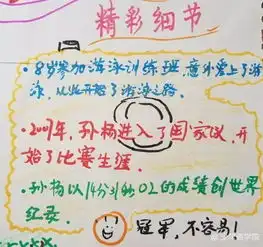 精彩细节
·8岁参加游泳训练班,意外爱上了游
泳,从此开始了游泳之路.
·2007年,孙杨进入了国家仪,开
始了比赛生涯.
·孙杨以14分31秒02的成绩创世界
纪录.
冠军,不容易!